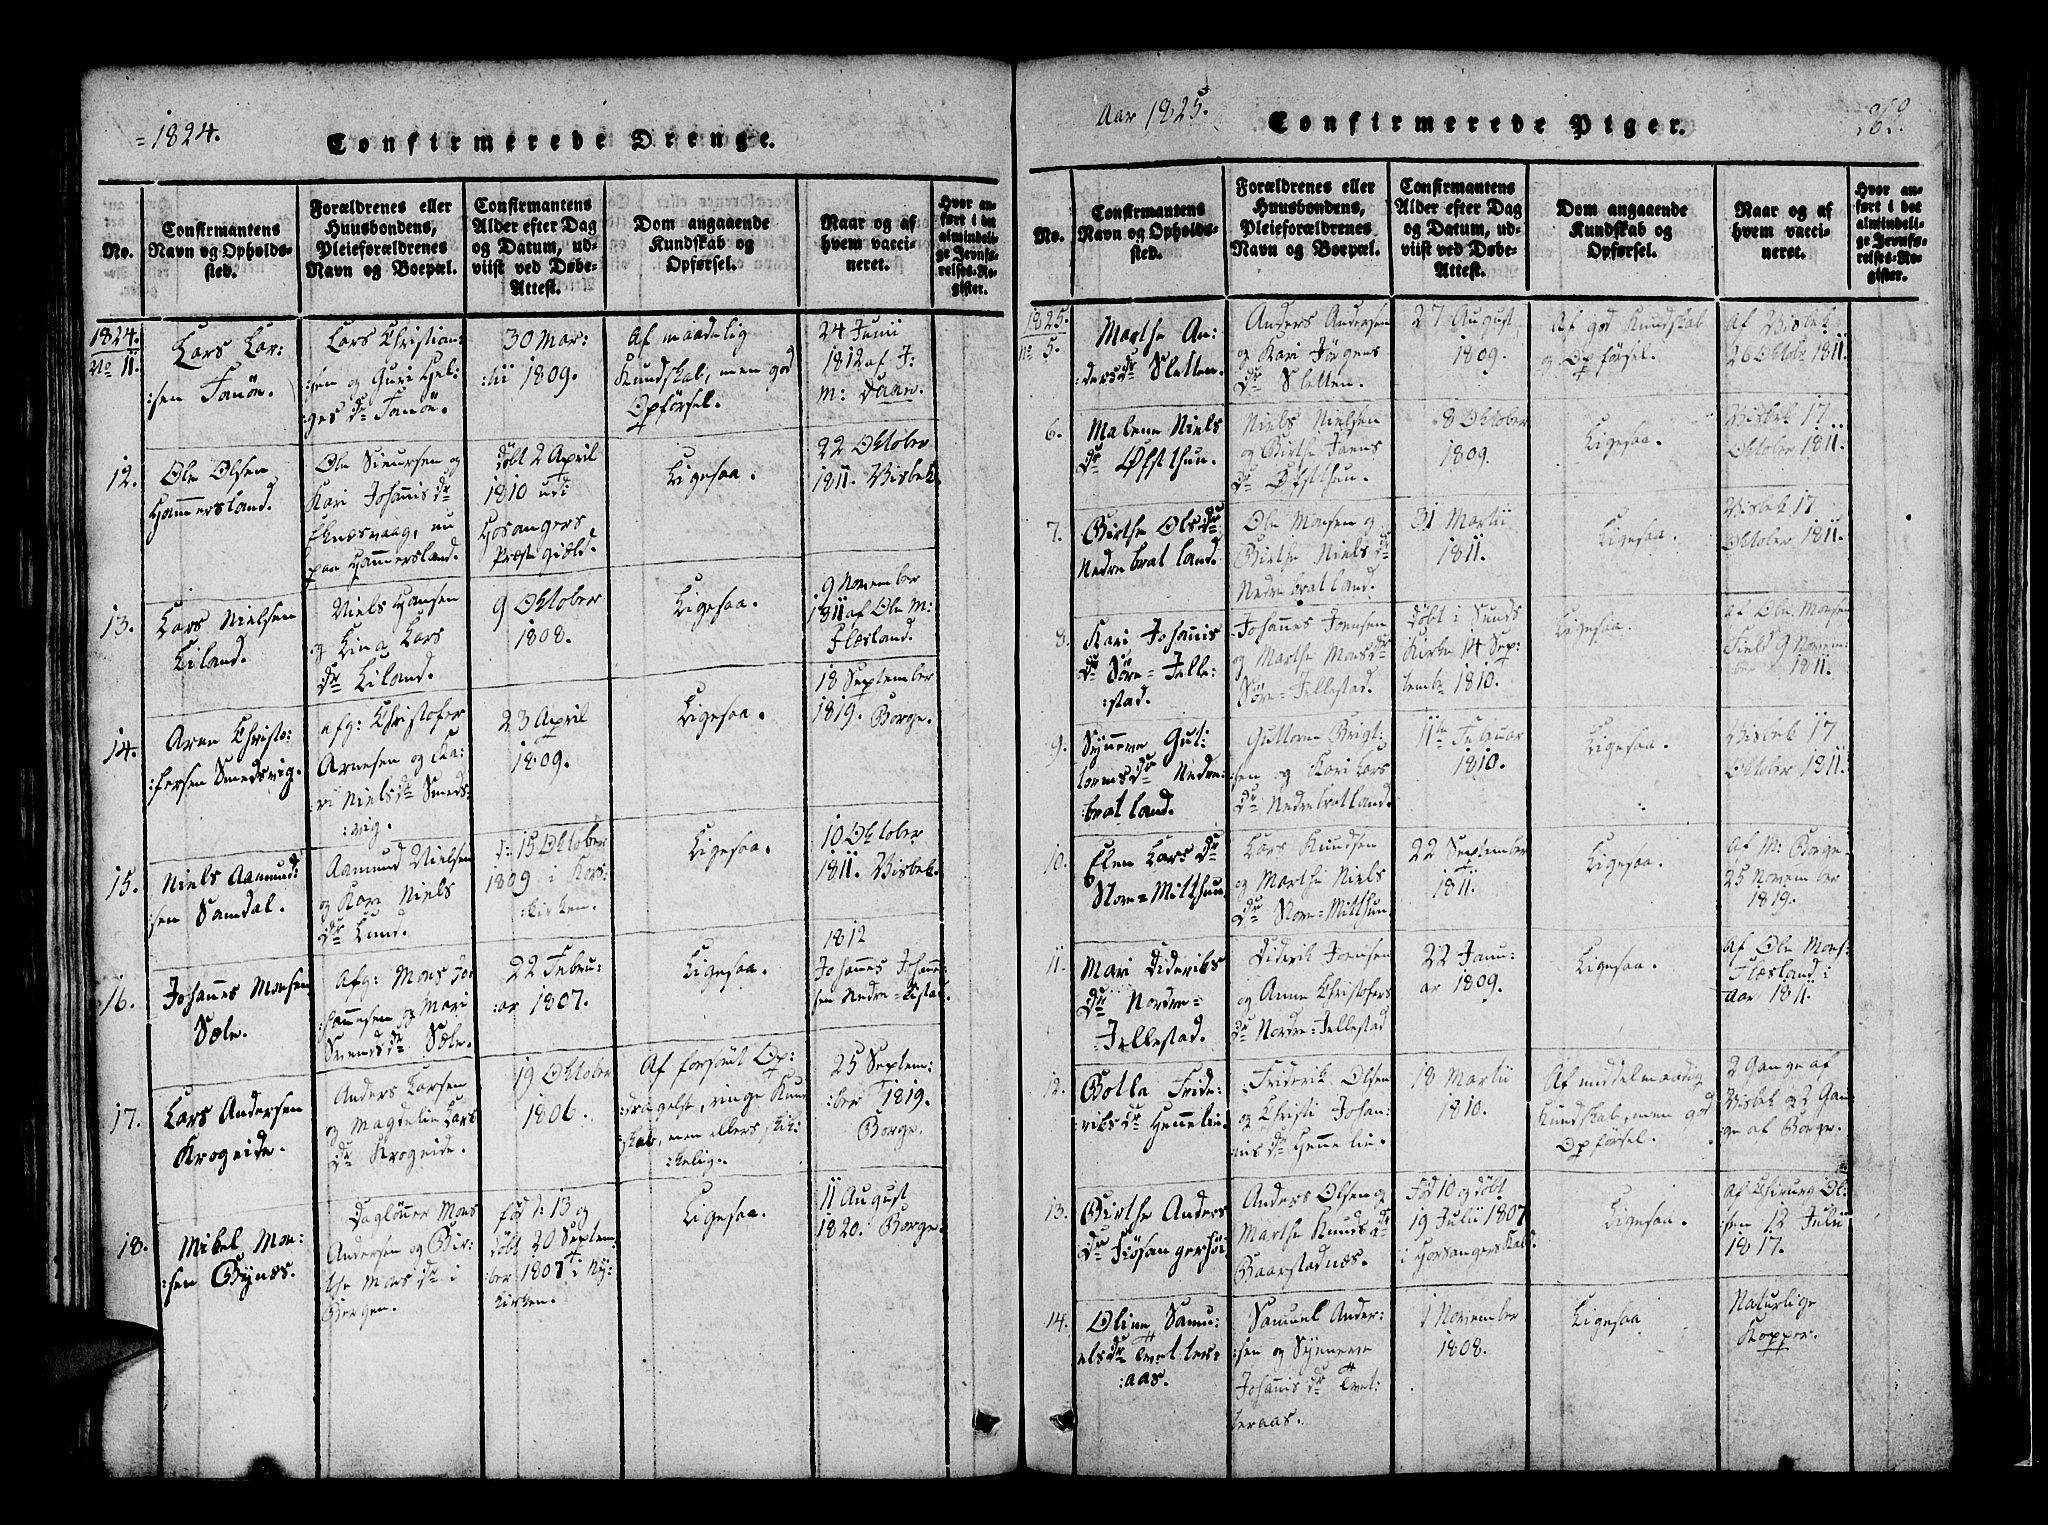 =1824.
Confirmerede Drenge.
No.
Confirmantens
Navn og Opholds-
sted.
Forældrenes eller
Huusbondens,
Pleieforældrenes
Navn og Boepæl.
Confirmantens
Alder efter Dag
og Datum, ud-
viist ved Døbe-
Attest.
Dom angaaende
Kundskab og
Opførsel.
Naar og af
hvem vacci-
neret.
Hvor an-
ført i det
almindeli-
ge Jevnfø-
relses-Re-
gister.
1824.
No 11.
Lars Lar:
:sen Fanöe.
Lars Christian:
:sen og Guri Hel:
:ges Dr Fanöe.
30 Mar:
:tii 1809.
Af maadelig
Kundskab, men god
Opførsel.
24 Juni
1812 af J:
M: Daae.
12.
Ole Olsen
Hammersland.
Ole Siursen og
Kari Johannis Dr
Eknæsvaag, nu
paa Hammersland.
Döbt 2 April
1810 udi
Hosangers
Præstgield.
Ligesaa.
22 Oktober
1811. Visbek.
13.
Lars Nielsen
Liland.
Niels Hansen
og Lina Lars
Dr Liland.
9 Oktober
1808.
Ligesaa.
9 November
1811 af Ole M:
Flesland.
14.
Aren Christo:
:fersen Smedsvig.
afg: Christofer
Arnesen og Ka:
ri Niels Dr Smeds:
:vig.
23 April
1809.
Ligesaa.
18 September
1819. Borge.
15.
Niels Aamund:
:sen Samdal.
Aamund Nielsen
og Kari Niels
Dr Lund.
d: 15 Oktober
1809 i Kors:
:kirken.
Ligesaa.
10 Oktober
1811. Visbek.
16.
Johannes Monsen
Sæle.
Afg: Mons Jo:
:hannesen og Mari
Svends Dr Sæle.
22 Febru:
:ar 1807.
Ligesaa.
1812
Johannes Johanne:
sen Nedre=Titlestad.
17.
Lars Andersen
Krogeide.
Anders Larsen
og Magdeli Lars
Dr Krogeide.
19 Oktober
1806.
Af forsömt Op:
:dragelse, ringe Kund
:skab, men ellers skik:
:kelig.
25 Septem:
:ber 1819.
Borge.
18.
Mikel Mon:
:sen Bynæs.
Daglönner Mons
Andersen og Bir:
the Mons Dr i
Bergen.
Föd d: 13 og
döbt 20 Septem:
ber 1807 i Ny:
kirken.
Ligesaa.
11 August
1820. Borge.
Aar 1825.
Confirmerede Piger.
No.
Confirmantens
Navn og Opholds-
sted.
Forældrenes eller
Huusbondens,
Pleieforældrenes
Navn og Boepæl.
Confirmantens
Alder efter Dag
og Datum, ud-
viist ved Døbe-
Attest.
Dom angaaende
Kundskab og
Opførsel.
Naar og af
hvem vacci-
neret.
Hvor an-
ført i det
almindeli-
ge Jevnfø-
relses-Re-
gister.
1825.
No 5.
Marthe An:
:ders Dr Sletten.
Anders Andersen
og Kari Jörgens
Dr Sletten.
27 August,
1809.
Af god Kundskab
og Opførsel.
Af Visbek
26 Oktobr 1811.
6.
Malene Niels
Dr Øfsthun.
Niels Nielsen
og Birthe Joens
Dr Øfsthun.
8 Oktober
1809.
Ligesaa.
Visbek 17
Oktober 1811.
7.
Birthe Ols Dr
Nedrebratland.
Ole Monsen og
Birthe Niels Dr
Nedrebratland.
31 Martii
1811.
Ligesaa.
Visbek 17
Oktober 1811.
8.
Kari Johannis
Dr Söre=Jelle:
:stad.
Johannes Joensen
og Marthe Mons Dr
Söre=Jellestad.
Döbt i Sunds
Kirke 14 Sep:
tembr 1810.
Ligesaa.
af Ole Monsen
Field 9 Novem:
1811.
9.
Synneve Gut:
torms Dr Nedre:
:bratland.
Guttorm Brigt:
:sen og Kari Lars
Dr Nedrebratland.
11te Februar
1810.
Ligesaa.
Visbek 17
Oktober 1811.
10.
Elen Lars Dr
Store=Mitthun
Lars Knudsen
og Marthe Niels
Dr Store=Mitthun.
22 September
1811.
Ligesaa.
Af M: Borge
25 November
1819.
11.
Mari Dideriks
Dr Nordre=
Jellestad.
Diderik Joensen
og Anne Christofers
Dr Nordre=Jellestad
22 Janu:
ar 1809.
Ligesaa.
Af Ole Mons:
Flesland i
Aar 1811.
12.
Botla Fride:
riks Dr Hennelie.
Friderik Olsen
og Christi Johan:
nis Dr Hennelie.
18 Martii
1810.
Af middelmaadig
Kundskab, men god
Opförsel.
2 Gange af
Visbek og 2 Gan:
ge af Borge.
13.
Birthe Anders
Dr Fiösangerhöi
Anders Olsen og
Marthe Knuds Dr
Baarstadnæs.
Föd 10 og döbt
19 Julii 1807
i Horsanger
Ligesaa.
Af Chirurg Ol:
sen 12 Julii
1817.
14.
Oline Samu:
els Dr Tvetter:
:aas.
Samuel Ander:
:sen og Synneve
Johannis Dr Tvet:
teraas.
1 November
1808.
Ligesaa
Naturlige
Kopper.